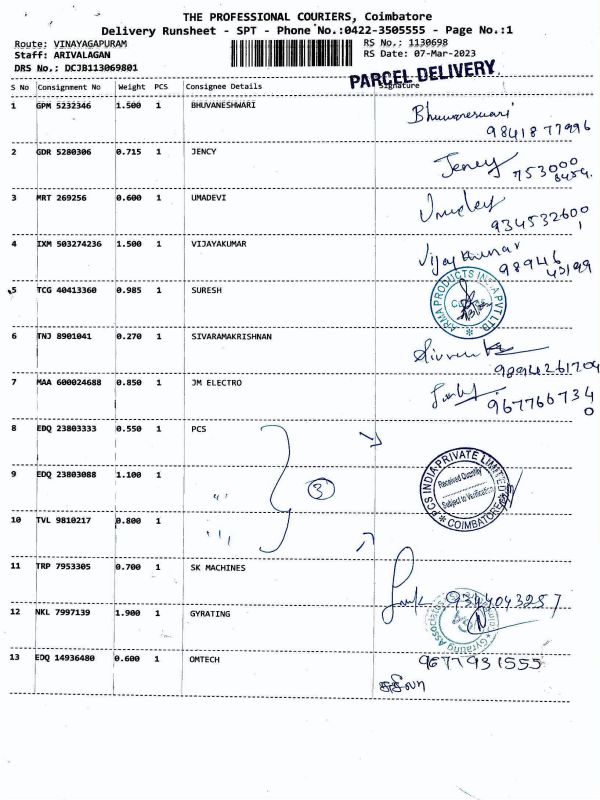 THE PROFESSIONAL COURIERS, Coimbatore
Delivery Runsheet - SPT - Phone No.:0422-3505555 - Page No.:1
Route: VINAYAGAPURAM RS No.: 1130698
Staff: ARIVALAGAN RS Date: 07-Mar-2023
DRS No.: DCJB113069801
PARCEL DELIVERY
S No Consignment No Weight PCS Consignee Details Signature
1 GPM 5232346 1.500 1 BHUVANESHWARI Bhuvaneswari
9841877996
2 GDR 5280306 0.715 1 JENCY Jency
753000
3 MRT 269256 0.600 1 UMADEVI
934532600
1
4 IXM 503274236 1.500 1 VIJAYAKUMAR Vijaykumar
98946
45199
5 TCG 40413360 0.985 1 SURESH
ARMA PRODUCTS INDIA PVT LTD
6 TNJ 8901041 0.270 1 SIVARAMAKRISHNAN
9894261704
7 MAA 600024688 0.850 1 JM ELECTRO
967766734
0
8 EDQ 23803333 0.550 1 PCS
9 EDQ 23803088 1.100 1 " 3
PCS INDIA PRIVATE LIMITED
Received Quantity
Subject to Verification
COIMBATORE
10 TVL 9810217 0.800 1
11 TRP 7953305 0.700 1 SK MACHINES
9344043257
12 NKL 7997139 1.900 1 GYRATING
Gyrating Associates
13 EDQ 14936480 0.600 1 OMTECH 9677931555